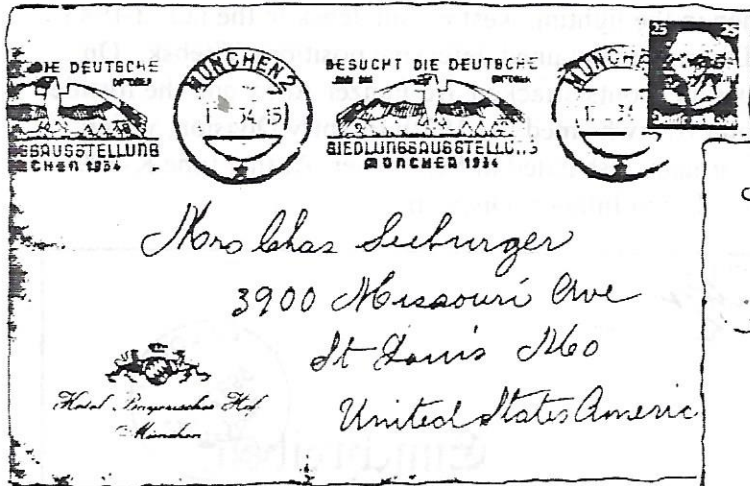 DIE DEUTSCHE
MÜNCHEN 2
34.15
AUSSTELLUNG
MÜNCHEN 1934
BESUCHT DIE DEUTSCHE
SIEDLUNGSAUSSTELLUNG
MÜNCHEN 1934
MÜNCHEN
34
25 25
Mrs Chas Seeburger
3900 Missouri Ave
St Louis Mo
United States America
Hotel Bayerischer Hof
München